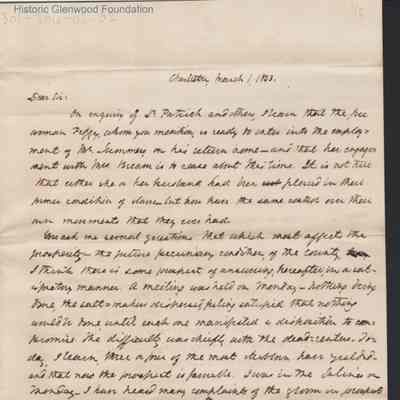 Historic Glenwood Foundation
Charleston, March 1, 1853.
Dear Sir:
On enquiry of Dr Patrick and others, I learn that the free
woman Peggy, whom you mention, is ready to enter into the employ-
ment of Mr. Summers on his return home—and that her engage-
ment with Mrs Bream is to cease about this time. It is not true
that either she or her husband had been placed in their
former condition of slaves, but now have the same control over their
own movements that they ever had.
You ask me several questions. That which most affects the
prosperity & the future pecuniary condition of the county
I think there is some prospect of answering, hereafter, in a sat-
isfactory manner. A meeting was held on Monday—nothing being
done, the salt-makers dispersed, feeling satisfied that nothing
would be done until each one manifested a disposition to com-
promise. The difficulty was chiefly with the dead-renters. To-
day, I learn three or four of the most stubborn have yielded—
and that now the prospect is favorable. I was in the Salines on
Monday—I have heard many complaints of the gloom in prospect